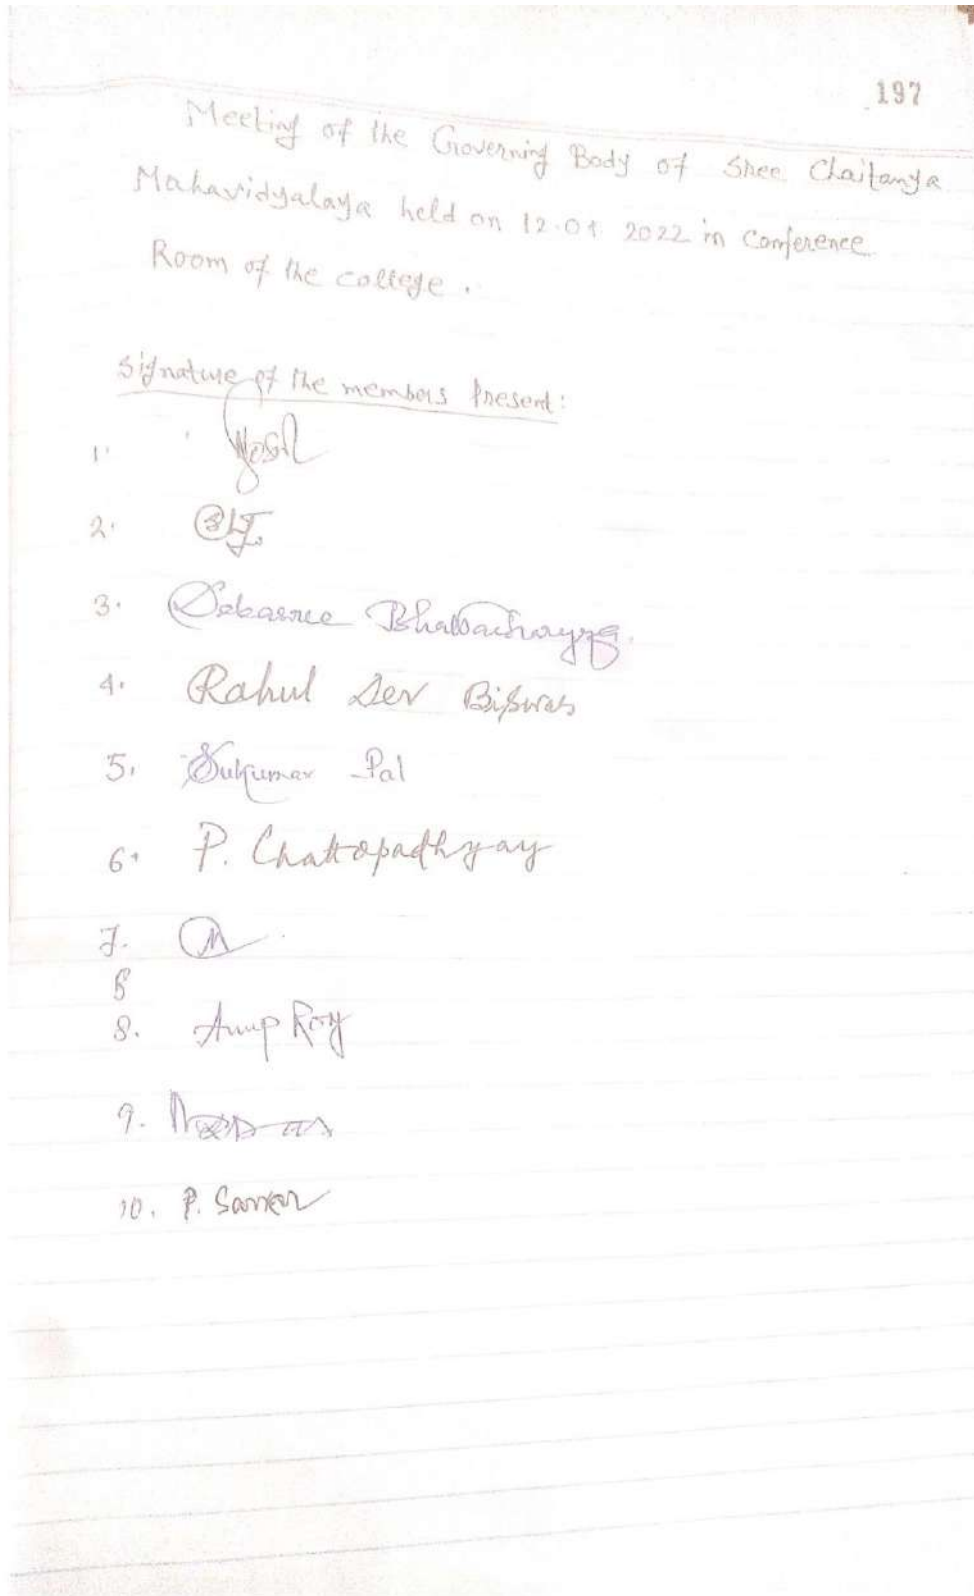 197
Meeting of the Governing Body of Shee Chaitanya
Mahavidyalaya held on 12.01.2022 in Conference
Room of the college.
Signature of the members Present:
1.
2.
3. Debasree Bhattacharyya.
4. Rahul Dev Biswas
5. Sukumar Pal
6. P. Chattopadhyay
7. M
8
8. Anup Roy
9.
10. P. Sarkar